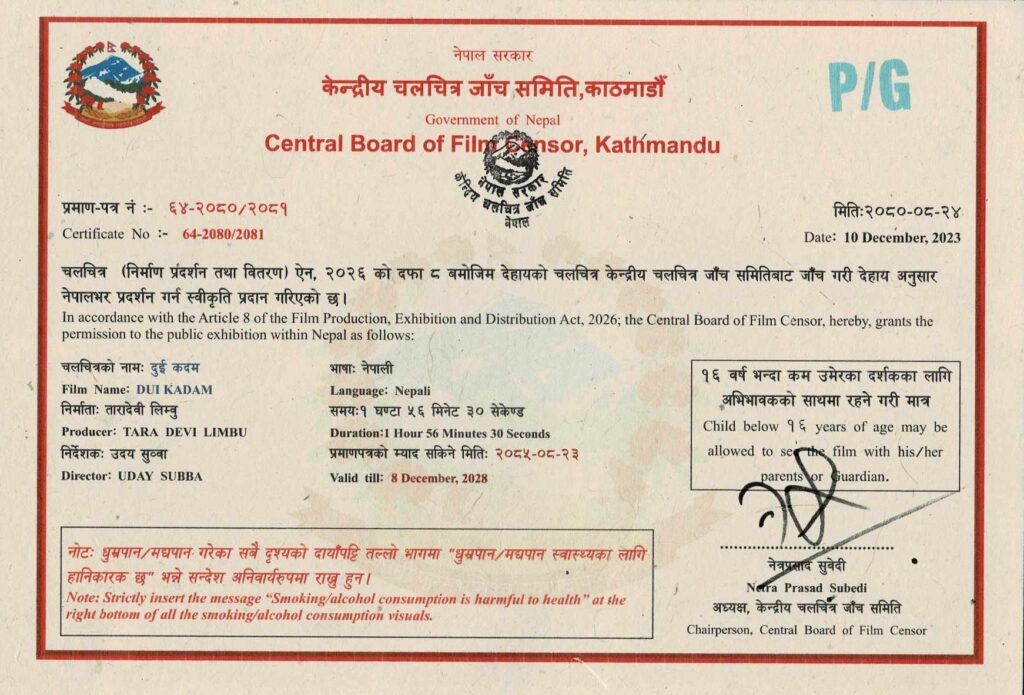 नेपाल सरकार
केन्द्रीय चलचित्र जाँच समिति,काठमाडौं
P/G
Government of Nepal
Central Board of Film Censor, Kathmandu
नेपाल सरकार
केन्द्रिय चलचित्र जाँच समिति
नेपाल
प्रमाण-पत्र नं :- ६४-२०८०/२०८१
मिति:२०८०-०८-२४
Certificate No :- 64-2080/2081
Date: 10 December, 2023
चलचित्र (निर्माण प्रदर्शन तथा वितरण) ऐन, २०२६ को दफा ८ बमोजिम देहायको चलचित्र केन्द्रीय चलचित्र जाँच समितिबाट जाँच गरी देहाय अनुसार
नेपालभर प्रदर्शन गर्न स्वीकृति प्रदान गरिएको छ।
In accordance with the Article 8 of the Film Production, Exhibition and Distribution Act, 2026; the Central Board of Film Censor, hereby, grants the
permission to the public exhibition within Nepal as follows:
चलचित्रको नामः दुई कदम
Film Name: DUI KADAM
निर्माताः तारादेवी लिम्बु
Producer: TARA DEVI LIMBU
निर्देशकः उदय सुब्वा
Director: UDAY SUBBA
भाषाः नेपाली
Language: Nepali
समय:१ घण्टा ५६ मिनेट ३० सेकेण्ड
Duration:1 Hour 56 Minutes 30 Seconds
प्रमाणपत्रको म्याद सकिने मितिः २०८५-०८-२३
Valid till: 8 December, 2028
१६ वर्ष भन्दा कम उमेरका दर्शकका लागि
अभिभावकको साथमा रहने गरी मात्र
Child below १६ years of age may be
allowed to see the film with his/her
parents or Guardian.
नेत्रप्रसाद सुवेदी
Netra Prasad Subedi
अध्यक्ष, केन्द्रीय चलचित्र जाँच समिति
Chairperson, Central Board of Film Censor
नोटः धुम्रपान/मद्यपान गरेका सबै दृश्यको दायाँपट्टि तल्लो भागमा "धुम्रपान/मद्यपान स्वास्थ्यका लागि
हानिकारक छ" भन्ने सन्देश अनिवार्यरुपमा राख्नु हुन।
Note: Strictly insert the message "Smoking/alcohol consumption is harmful to health" at the
right bottom of all the smoking/alcohol consumption visuals.